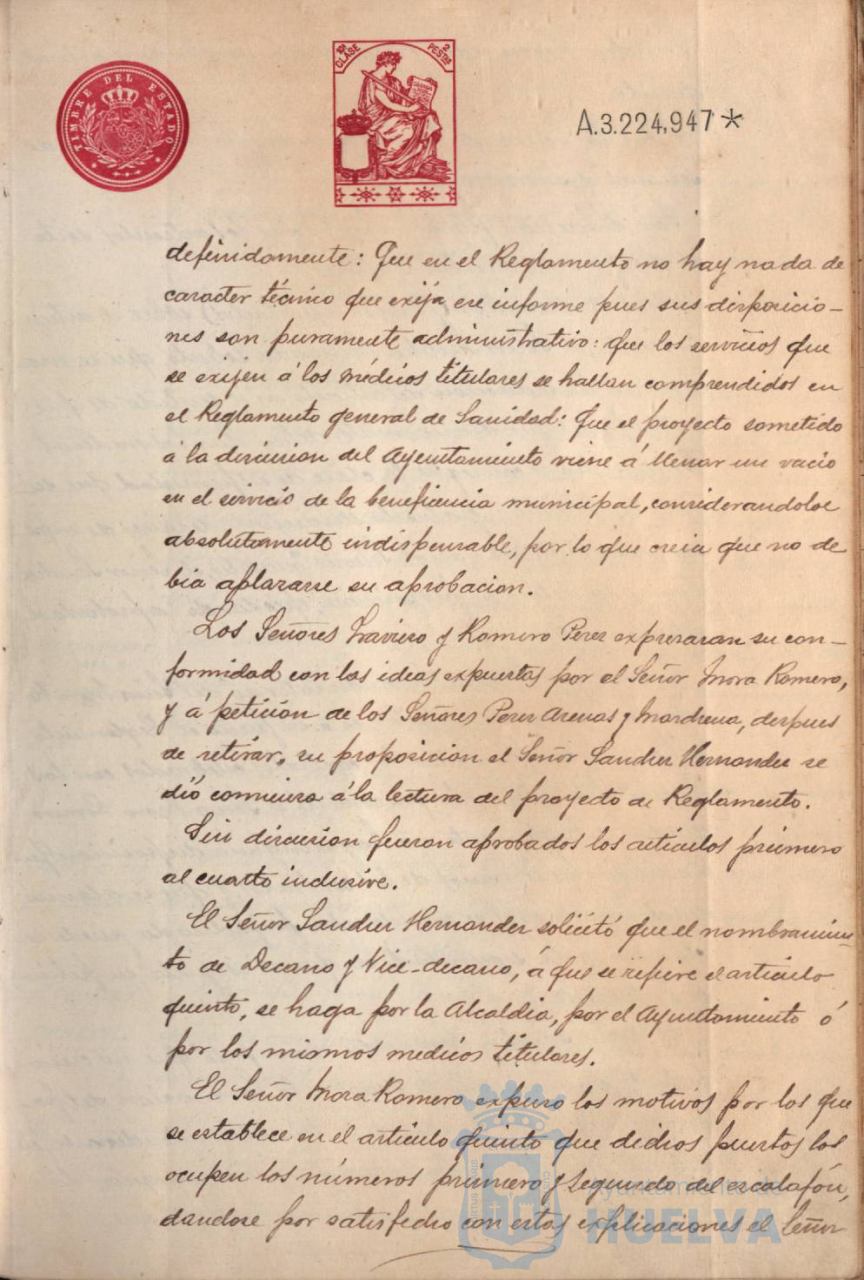 TIMBRE DEL ESTADO
10ª CLASE 2 PESTAS
A.3.224,947*
definidamente: Que en el Reglamento no hay nada de
caracter técnico que exija ese informe pues sus disposicio-
nes son puramente administrativo: que los servicios que
se exijen á los médicos titulares se hallan comprendidos en
el Reglamento general de Sanidad: Que el proyecto sometido
á la discusion del Ayuntamiento viene á llenar un vacio
en el servicio de la beneficencia municipal, considerandolo
absolutamente indispensable, por lo que creia que no de
bia aplazarse su aprobacion.
Los Señores y Romero Perez expresaran su con-
formidad con las ideas expuestas por el Señor Mora Romero,
y á peticion de los Señores Perez Arenas y Marchena, despues
de retirar, su proposicion el Señor Sanchez Hernandez se
dió comienzo á la lectura del proyecto de Reglamento.
Sin discusion fueron aprobados los articulos primero
al cuarto inclusive.
El Señor Sanchez Hernandez solicitó que el nombramien-
to de Decano y Vice-decano, á que se refiere el articulo
quinto, se haga por la Alcaldia, por el Ayuntamiento ó
por los mismos medicos titulares.
El Señor Mora Romero expuso los motivos por los que
se establece en el articulo quinto que dichos puestos los
ocupen los números primero y segundo del escalafón,
dandose por satisfecho con estas explicaciones el Señor
Ayuntamiento de
HUELVA